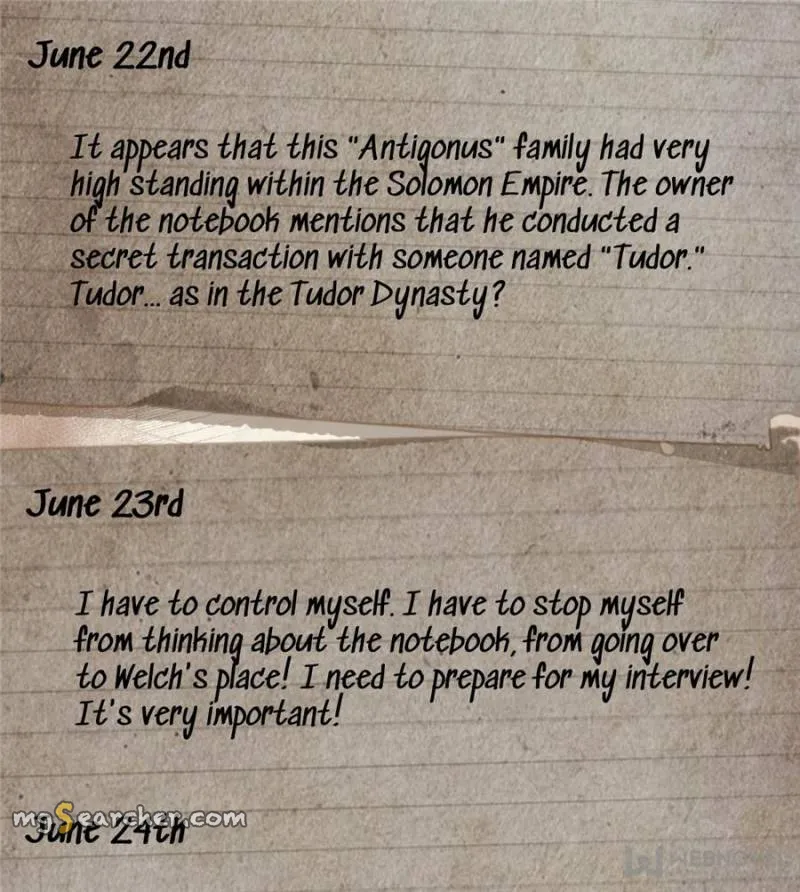 June 22nd
It appears that this "Antigonus" family had very
high standing within the Solomon Empire. The owner
of the notebook mentions that he conducted a
secret transaction with someone named "Tudor."
Tudor... as in the Tudor Dynasty?
June 23rd
I have to control myself. I have to stop myself
from thinking about the notebook, from going over
to Welch's place! I need to prepare for my interview!
It's very important!
mgSearcher.com
June 24th
WEBNOVEL